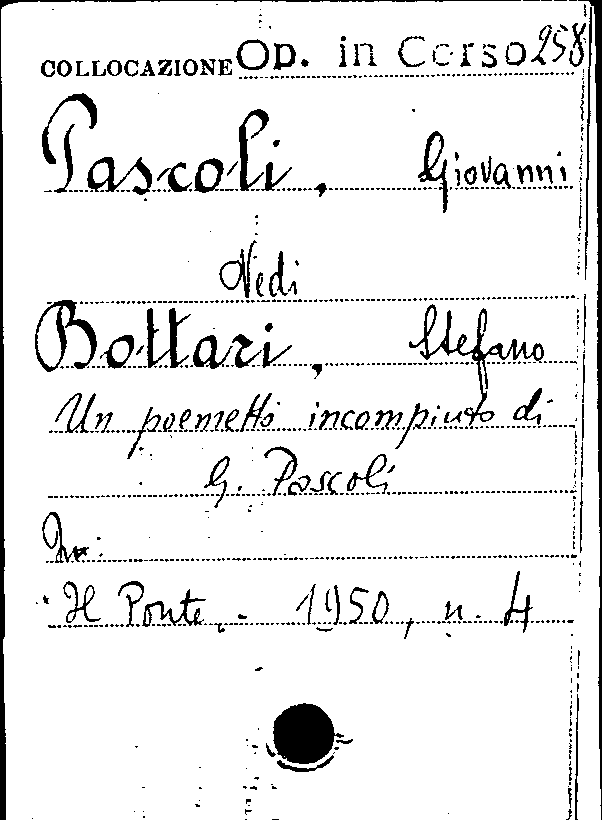 COLLOCAZIONE Op. in Corso 258
Pascoli, Giovanni
Vedi
Bottari, Stefano
Un poemetto incompiuto di
G. Pascoli
In:
Il Ponte.- 1950, n. 4